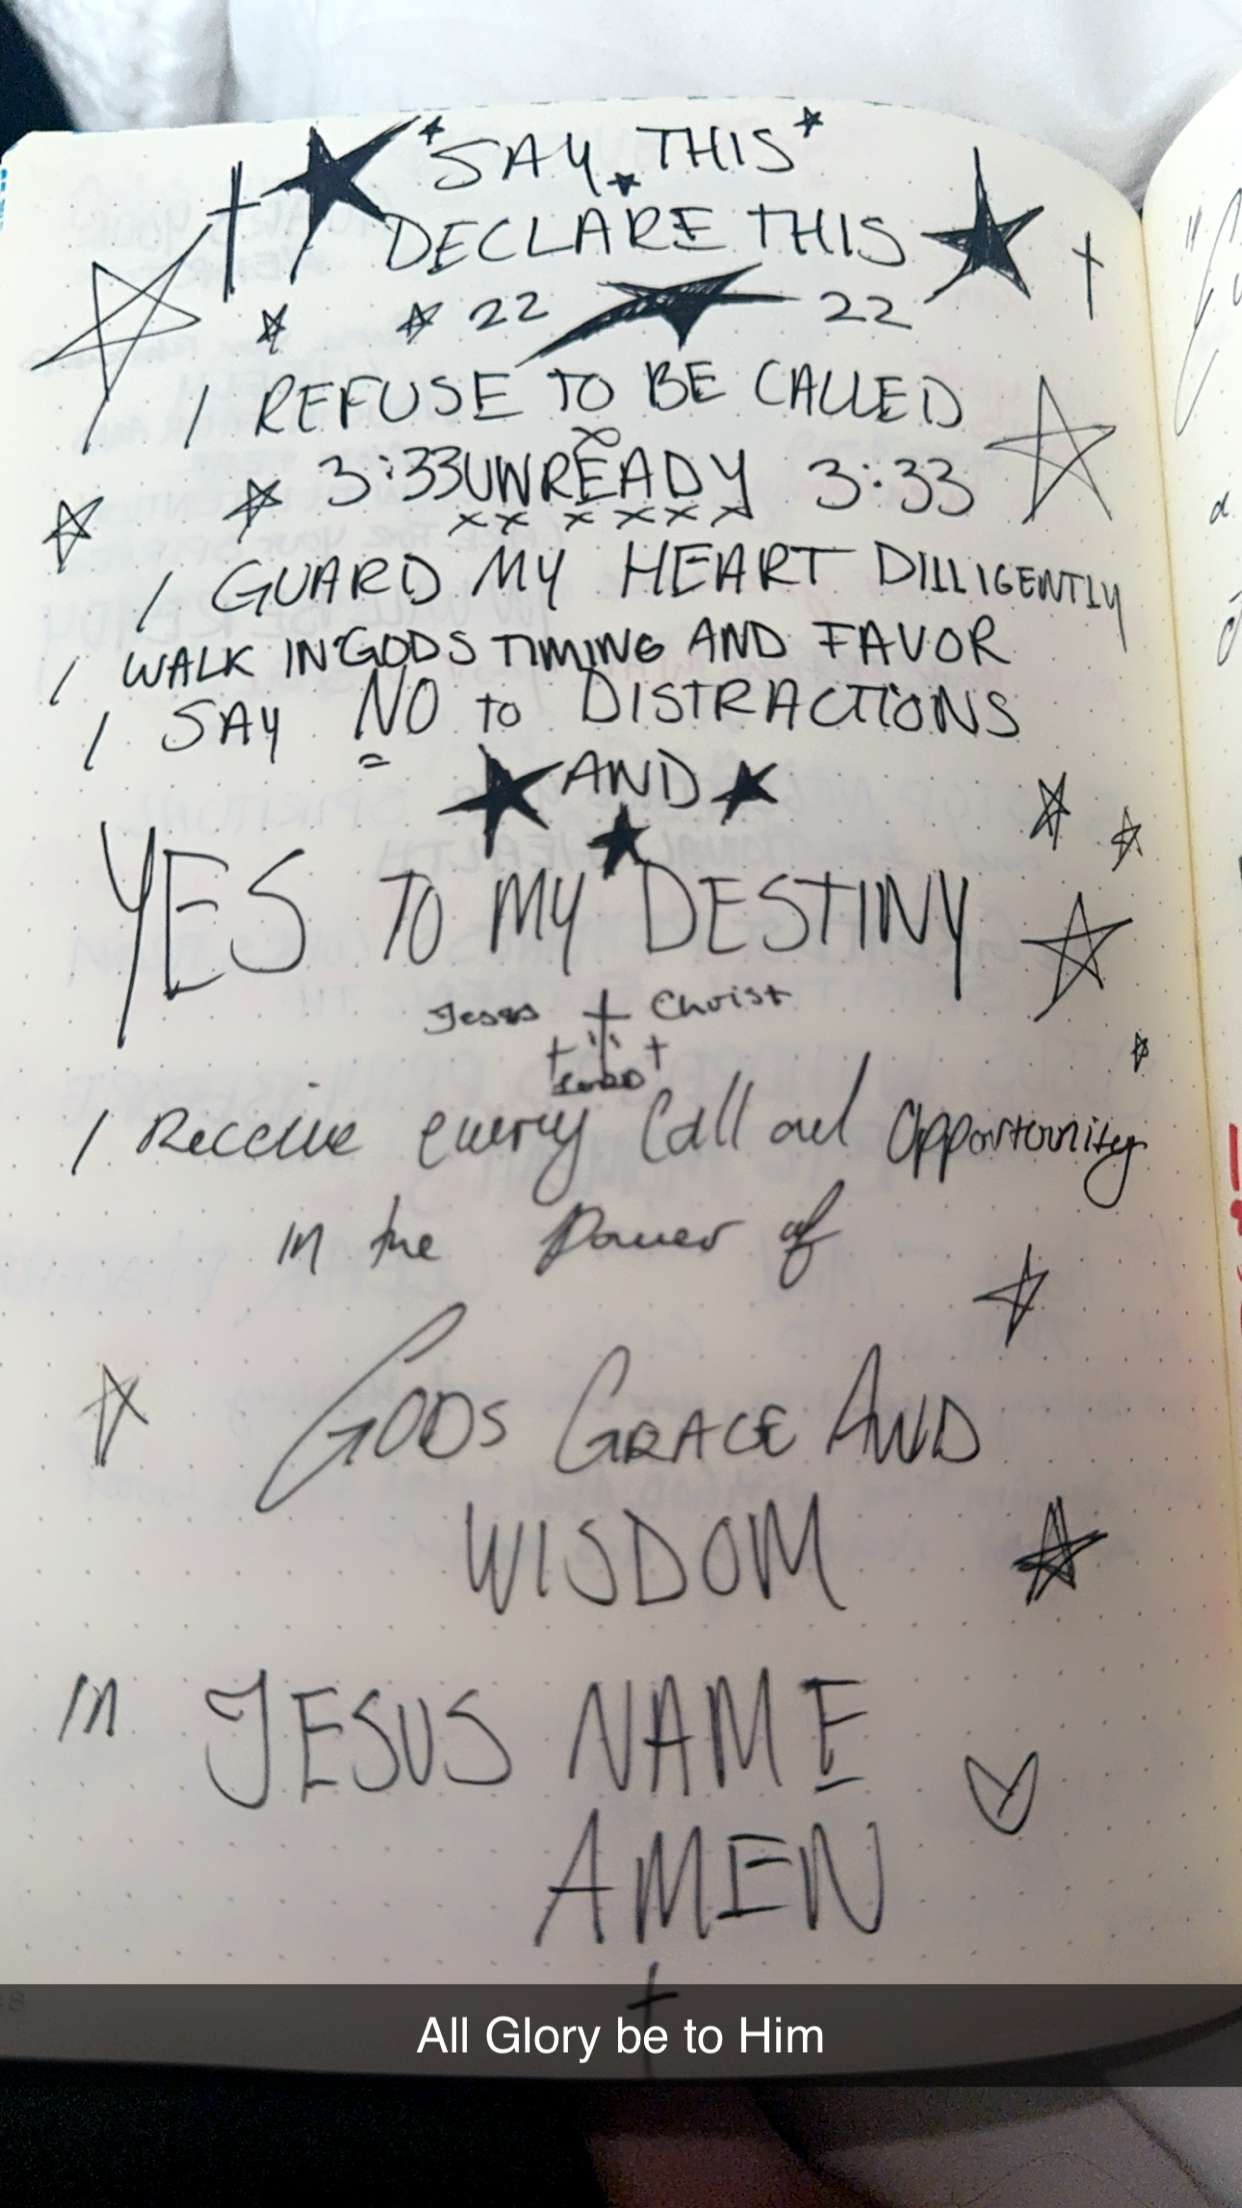 SAY THIS
DECLARE THIS
22 22
I REFUSE TO BE CALLED
3:33 UNREADY 3:33
I GUARD MY HEART DILLIGENTLY
I WALK IN GODS TIMING AND FAVOR
I SAY NO to DISTRACTIONS
AND
YES TO MY DESTINY
Jesus Christ
I Receive every Call and Opportunity
in the Power of
GODS GRACE AND
WISDOM
in JESUS NAME
AMEN
All Glory be to Him